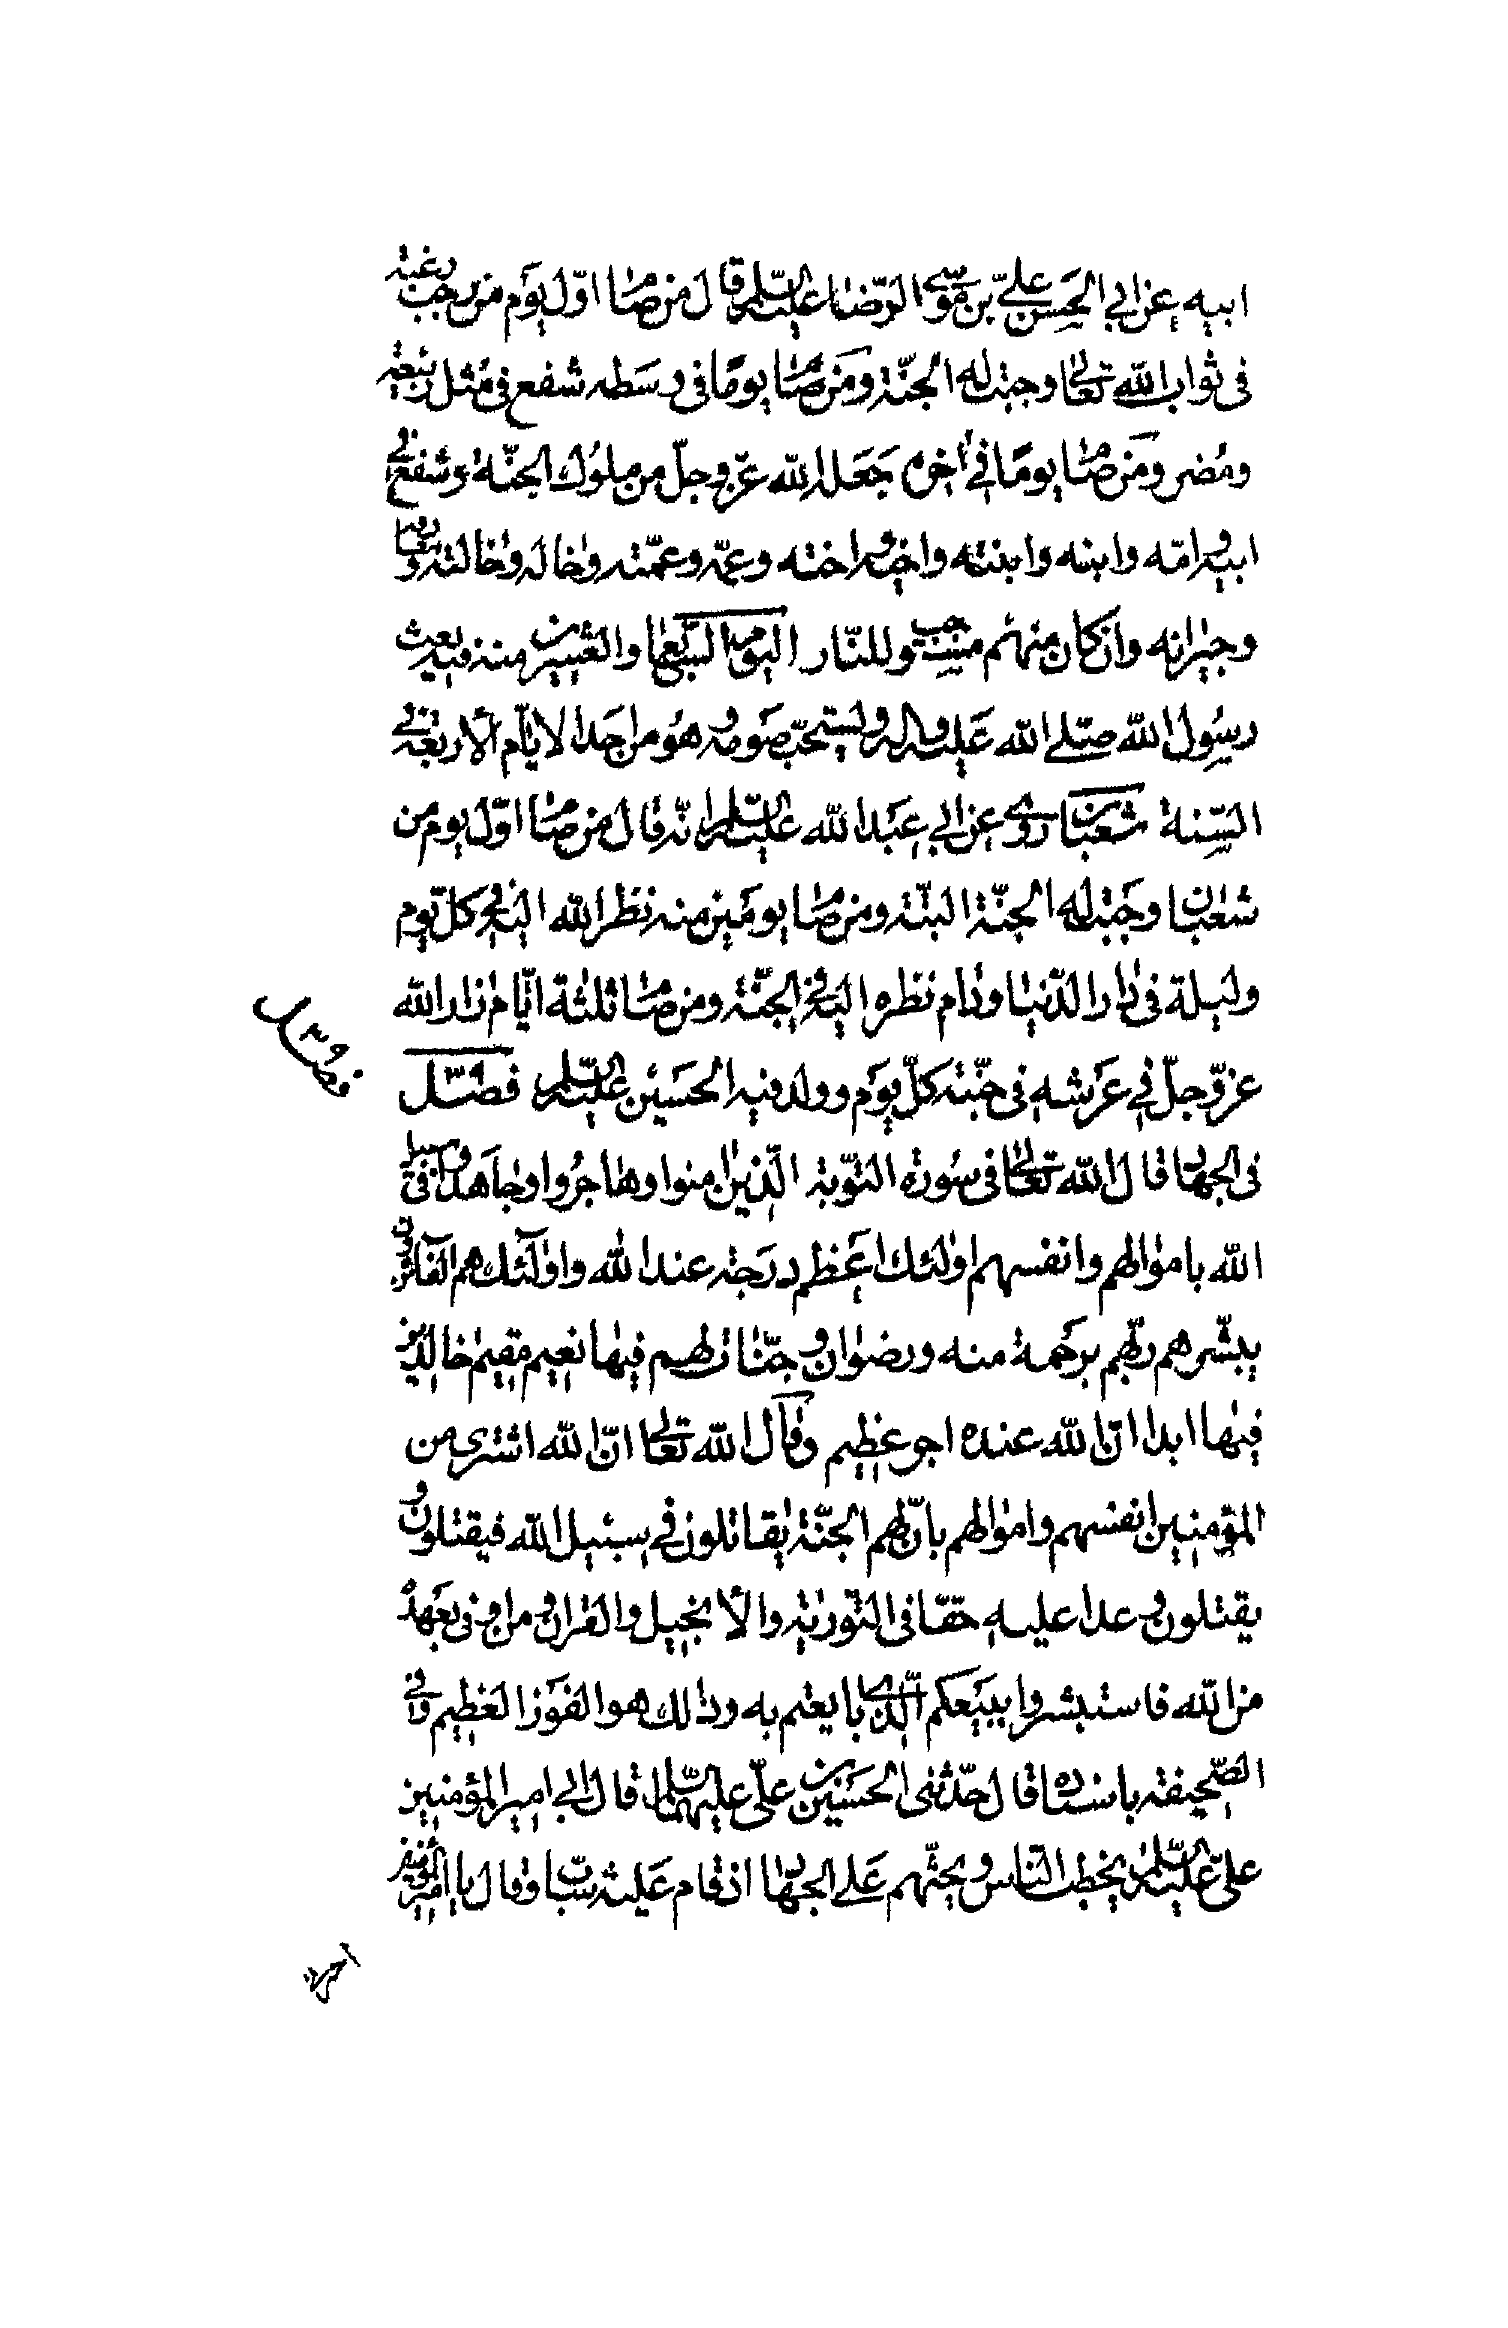 ابيه عن ابي الحسن علي بن موسى الرضا عليه السلم قال من صام اول يوم من رجب رغبة
في ثواب الله تعالى وجبت له الجنة ومن صام يوما في وسطه شفع في مثل ربيعة
ومضر ومن صام يوما في اخره جعله الله عز وجل من ملوك الجنة وشفع في
ابيه وامه وابنه وابنته واخيه واخته وعمه وعمته وخاله وخالته ومعارفه
وجيرانه وان كان منهم مستوجب للنار اليوم السابع والعشرين منه فيه بعث
رسول الله صلى الله عليه واله ويستحب صومه وهو من احد الايام الاربعة في
السنة شعبان روي عن ابي عبد الله عليه السلم انه قال من صام اول يوم من
شعبان وجبت له الجنة البتة ومن صام يومين منه نظر الله اليه في كل يوم
وليلة في دار الدنيا ودام نظره اليه في الجنة ومن صام ثلثة ايام زار الله
عز وجل في عرشه في جنته كل يوم وولد فيه الحسين عليه السلم فصل
في الجهاد قال الله تعالى في سورة التوبة الذين امنوا وهاجروا وجاهدوا في سبيل
الله باموالهم وانفسهم اولئك اعظم درجة عند الله واولئك هم الفائزون
يبشرهم ربهم برحمة منه ورضوان وجنات لهم فيها نعيم مقيم خالدين
فيها ابدا ان الله عنده اجر عظيم وقال الله تعالى ان الله اشترى من
المؤمنين انفسهم واموالهم بان لهم الجنة يقاتلون في سبيل الله فيقتلون و
يقتلون وعدا عليه حقا في التورية والانجيل والقران ومن اوفى بعهده
من الله فاستبشروا ببيعكم الذي بايعتم به وذالك هو الفوز العظيم وفي
الصحيفة باسناده قال حدثنى الحسين بن علي عليهما السلم قال ابي امير المؤمنين
علي عليه السلم يخطب الناس ويحثهم على الجهاد اذ قام عليه شاب وقال يا امير المؤمنين